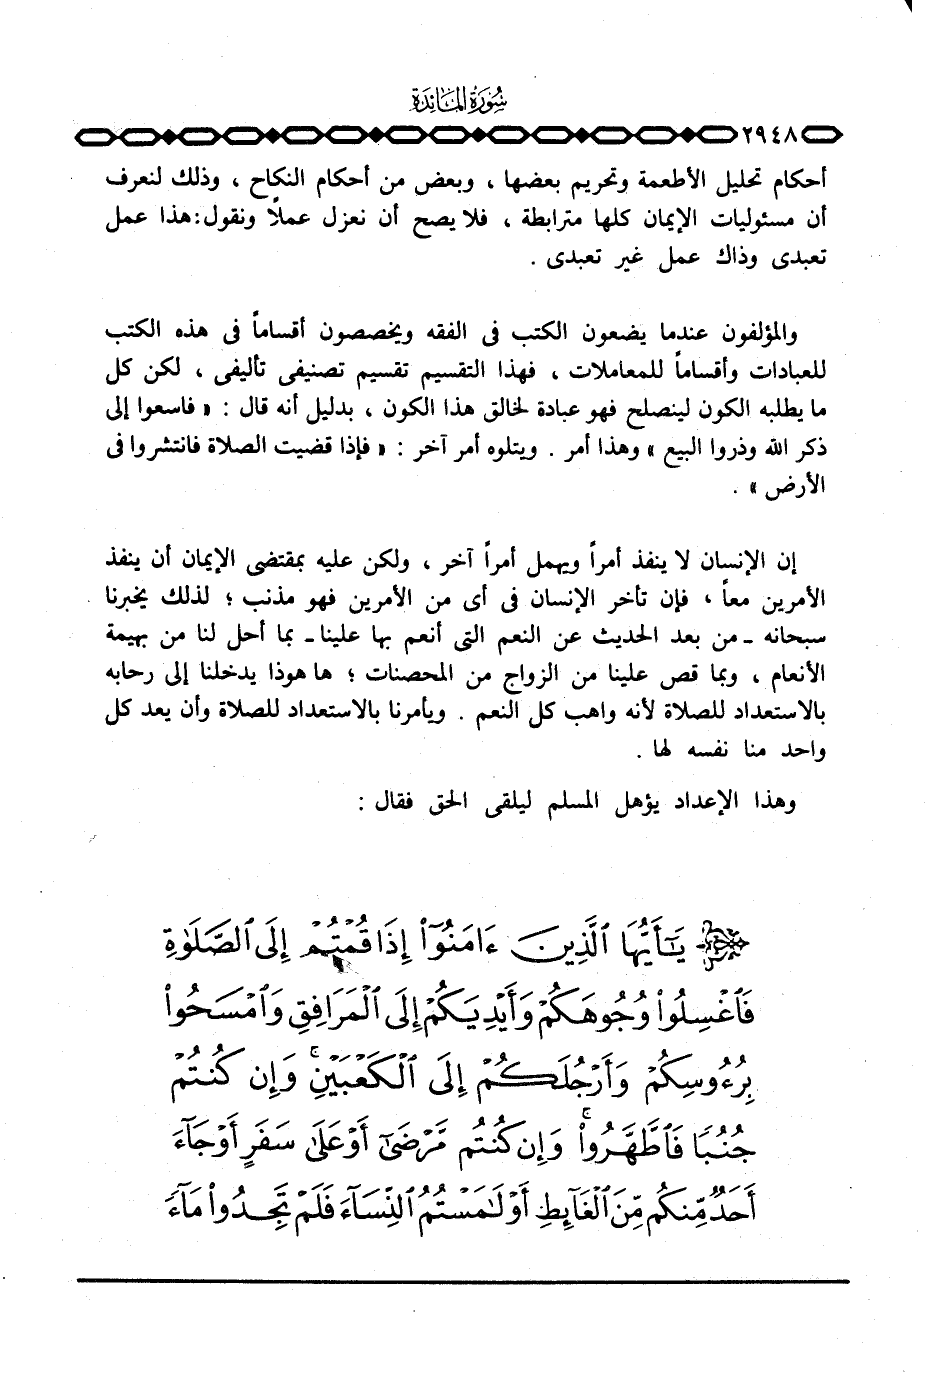 سُورَةُ المَائِدَة
٢٩٤٨
أحكام تحليل الأطعمة وتحريم بعضها ، وبعض من أحكام النكاح ، وذلك لنعرف
أن مسئوليات الإيمان كلها مترابطة ، فلا يصح أن نعزل عملاً ونقول:هذا عمل
تعبدى وذاك عمل غير تعبدى .
والمؤلفون عندما يضعون الكتب فى الفقه ويخصصون أقساماً فى هذه الكتب
للعبادات وأقساماً للمعاملات ، فهذا التقسيم تقسيم تصنيفى تأليفى ، لكن كل
ما يطلبه الكون لينصلح فهو عبادة لخالق هذا الكون ، بدليل أنه قال : « فاسعوا إلى
ذكر الله وذروا البيع » وهذا أمر . ويتلوه أمر آخر : « فإذا قضيت الصلاة فانتشروا فى
الأرض » .
إن الإنسان لا ينفذ أمراً ويهمل أمراً آخر ، ولكن عليه بمقتضى الإيمان أن ينفذ
الأمرين معاً ، فإن تأخر الإنسان فى أى من الأمرين فهو مذنب ؛ لذلك يخبرنا
سبحانه - من بعد الحديث عن النعم التى أنعم بها علينا - بما أحل لنا من بهيمة
الأنعام ، وبما قص علينا من الزواج من المحصنات ؛ ها هوذا يدخلنا إلى رحابه
بالاستعداد للصلاة لأنه واهب كل النعم . ويأمرنا بالاستعداد للصلاة وأن يعد كل
واحد منا نفسه لها .
وهذا الإعداد يؤهل المسلم ليلقى الحق فقال :
يَٰٓأَيُّهَا ٱلَّذِينَ ءَامَنُوٓا۟ إِذَا قُمْتُمْ إِلَى ٱلصَّلَوٰةِ
فَٱغْسِلُوا۟ وُجُوهَكُمْ وَأَيْدِيَكُمْ إِلَى ٱلْمَرَافِقِ وَٱمْسَحُوا۟
بِرُءُوسِكُمْ وَأَرْجُلَكُمْ إِلَى ٱلْكَعْبَيْنِ ۚ وَإِن كُنتُمْ
جُنُبًا فَٱطَّهَّرُوا۟ ۚ وَإِن كُنتُم مَّرْضَىٰٓ أَوْ عَلَىٰ سَفَرٍ أَوْ جَآءَ
أَحَدٌ مِّنكُم مِّنَ ٱلْغَآئِطِ أَوْ لَٰمَسْتُمُ ٱلنِّسَآءَ فَلَمْ تَجِدُوا۟ مَآءً